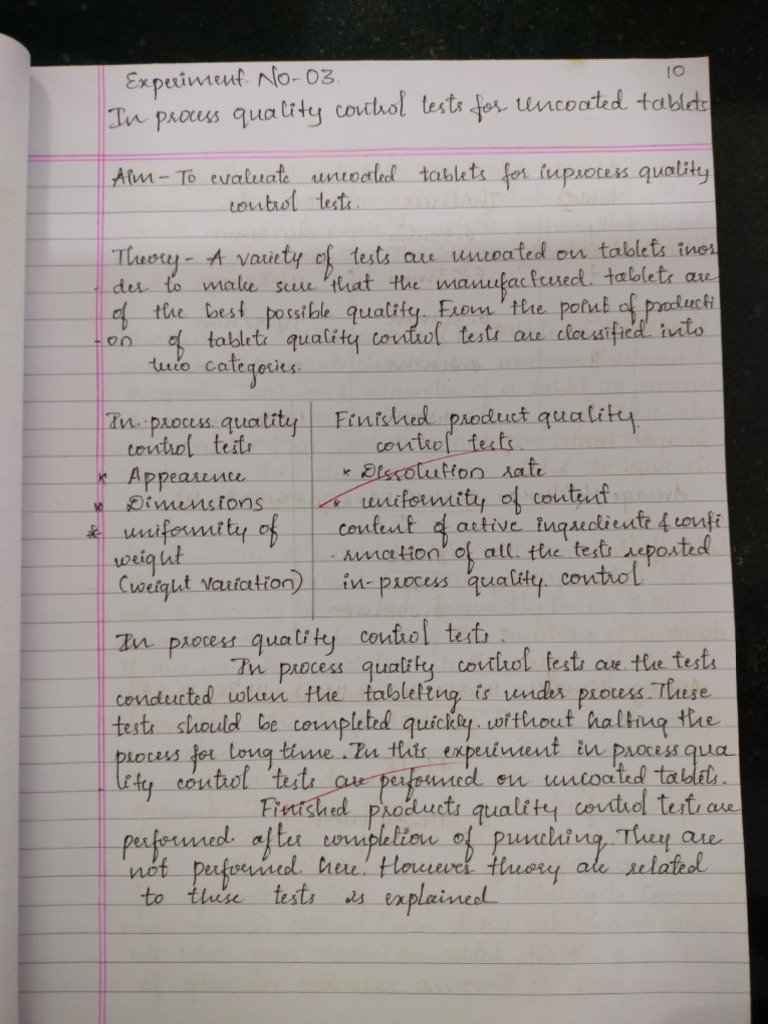 10
Experiment No-03.
In process quality control tests for uncoated tablets
Aim- To evaluate uncoated tablets for inprocess quality
control tests.
Theory- A variety of tests are uncoated on tablets inor
der to make sure that the manufactured tablets are
of the best possible quality. From the point of producti
-on of tablets quality control tests are classified into
two categories.
In-process quality
control tests
* Appearence
* Dimensions
* uniformity of
weight
(weight variation)
Finished product quality
control tests.
* Dissolution rate
* uniformity of content
content of active ingredients & confi
-rmation of all the tests reported
in-process quality control
In process quality control tests.
In process quality control tests are the tests
conducted when the tableting is under process. These
tests should be completed quickly without halting the
process for long time. In this experiment in process qua
lity control tests are performed on uncoated tablets.
Finished products quality control test are
performed after completion of punching. They are
not performed here. However theory are related
to these tests is explained